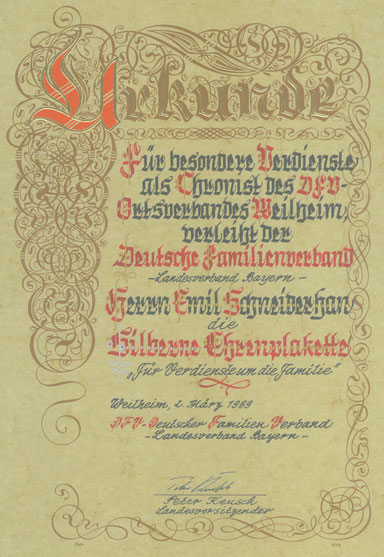 Urkunde
Für besondere Verdienste
als Chronist des DFV-
Ortsverbandes Weilheim,
verleiht der
Deutsche Familienverband
-Landesverband Bayern-
Herrn Emil Schneiderhan
die
Silberne Ehrenplakette
„Für Verdienste um die Familie"
Weilheim, 2. März 1989
DFV-Deutscher Familien Verband
-Landesverband Bayern-
Peter Keusch
Landesvorsitzender